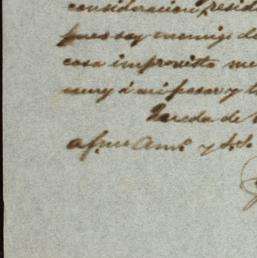 consideracion, resid
pues soy enemigo de
cosa improvista me
muy á mi pesar y t
Queda de V
afmo Amo y S.S.